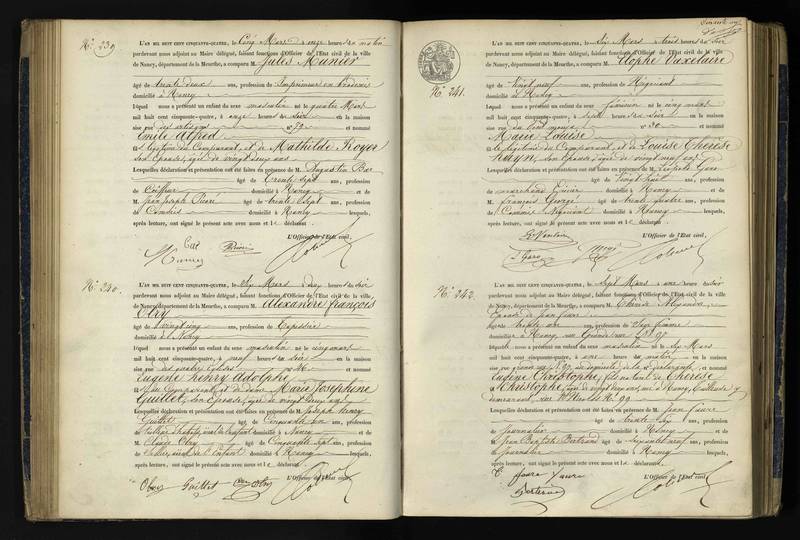 N.° 239
L'AN MIL HUIT CENT CINQUANTE-QUATRE, le Cinq Mars à onze heures du matin
pardevant nous adjoint au Maire délégué, faisant fonctions d'Officier de l'Etat civil de la ville
de Nancy, département de la Meurthe, a comparu M. Jules Munier
âgé de trente deux ans, profession de Imprimeur en
domicilié à Nancy
lequel nous a présenté un enfant du sexe masculin né le quatre Mars
mil huit cent cinquante-quatre, à onze heures du soir en la maison
sise rue des artisans n° 79 et nommé
Emile Alfred
fils légitime du Comparant, et de Mathilde Royer
son épouse, âgée de vingt deux ans
Lesquelles déclaration et présentation ont été faites en présence de M. Augustin Bar
âgé de trente sept ans, profession
de Coiffeur domicilié à Nancy et de
M. Jean Joseph Pierre âgé de trente sept ans, profession
de Commis domicilié à Nancy lesquels,
après lecture, ont signé le présent acte avec nous et le déclarant
L'Officier de l'Etat civil,
Bar
Munier
N.° 240.
L'AN MIL HUIT CENT CINQUANTE-QUATRE, le Six Mars à heures du soir
pardevant nous adjoint au Maire délégué, faisant fonctions d'Officier de l'Etat civil de la ville
de Nancy, département de la Meurthe, a comparu M. Alexandre François
Olry
âgé de vingt cinq ans, profession de Tapissier
domicilié à Nancy
lequel nous a présenté un enfant du sexe masculin né le cinq mars
mil huit cent cinquante-quatre, à neuf heures du soir en la maison
sise rue des quatre églises n° et nommé
Eugène Henry Adolphe
fils du Comparant et de dame Marie Josephine
Guillet, son Epouse, âgée de vingt deux ans
Lesquelles déclaration et présentation ont été faites en présence de M. Joseph Henry
Guillet âgé de Cinquante ans, profession
de domicilié à Nancy et de
M. Olry âgé de Cinquante sept ans, profession
de Sellier, aïeul de l'Enfant domicilié à Nancy lesquels,
après lecture, ont signé le présent acte avec nous et le déclarant.
L'Officier de l'Etat civil,
Olry Guillet Olry
N.° 241.
L'AN MIL HUIT CENT CINQUANTE-QUATRE, le Six Mars à trois heures du soir
pardevant nous adjoint au Maire délégué, faisant fonctions d'Officier de l'Etat civil de la ville
de Nancy, département de la Meurthe, a comparu M. Elophe Vaxelaire
âgé de Vingt neuf ans, profession de Négociant
domicilié à Nancy
lequel nous a présenté un enfant du sexe féminin né le cinq mars
mil huit cent cinquante-quatre, à sept heures du soir en la maison
sise rue du Pont mouja n° 30 et nommé
Marie Louise
fille légitime du Comparant, et de Louise Thérèse
son épouse, âgée de vingt neuf ans
Lesquelles déclaration et présentation ont été faites en présence de M. Léopold Gars
âgé de Vingt huit ans, profession
de marchand Epicier domicilié à Nancy et de
M. François George âgé de trente quatre ans, profession
de Commis Négociant domicilié à Nancy lesquels,
après lecture, ont signé le présent acte avec nous et le déclarant
L'Officier de l'Etat civil,
N.° 242.
L'AN MIL HUIT CENT CINQUANTE-QUATRE, le Sept Mars à une heures du soir
pardevant nous adjoint au Maire délégué, faisant fonctions d'Officier de l'Etat civil de la ville
de Nancy, département de la Meurthe, a comparu M. Thérèse
Epouse de Jean Faure
âgée de trente six ans, profession de Sage femme
domicilié à Nancy, rue grande rue n° 97
lequel nous a présenté un enfant du sexe masculin né le six Mars
mil huit cent cinquante-quatre, à une heures du matin en la maison
sise rue grande rue n° 97, au domicile de la déclarante, et nommé
Eugène Christophe, fils naturel de Thérèse
Christophe, âgée de vingt ans, née à Nancy, Tailleuse y
demeurant, rue St Nicolas N° 99
Lesquelles déclaration et présentation ont été faites en présence de M. Jean Faure
âgé de trente six ans, profession
de Journalier domicilié à Nancy et de
M. Jean Baptiste Bertrand âgé de soixante neuf ans, profession
de Journalier domicilié à Nancy lesquels,
après lecture, ont signé le présent acte avec nous et le déclarant.
L'Officier de l'Etat civil,
Faure Faure
Bertrand